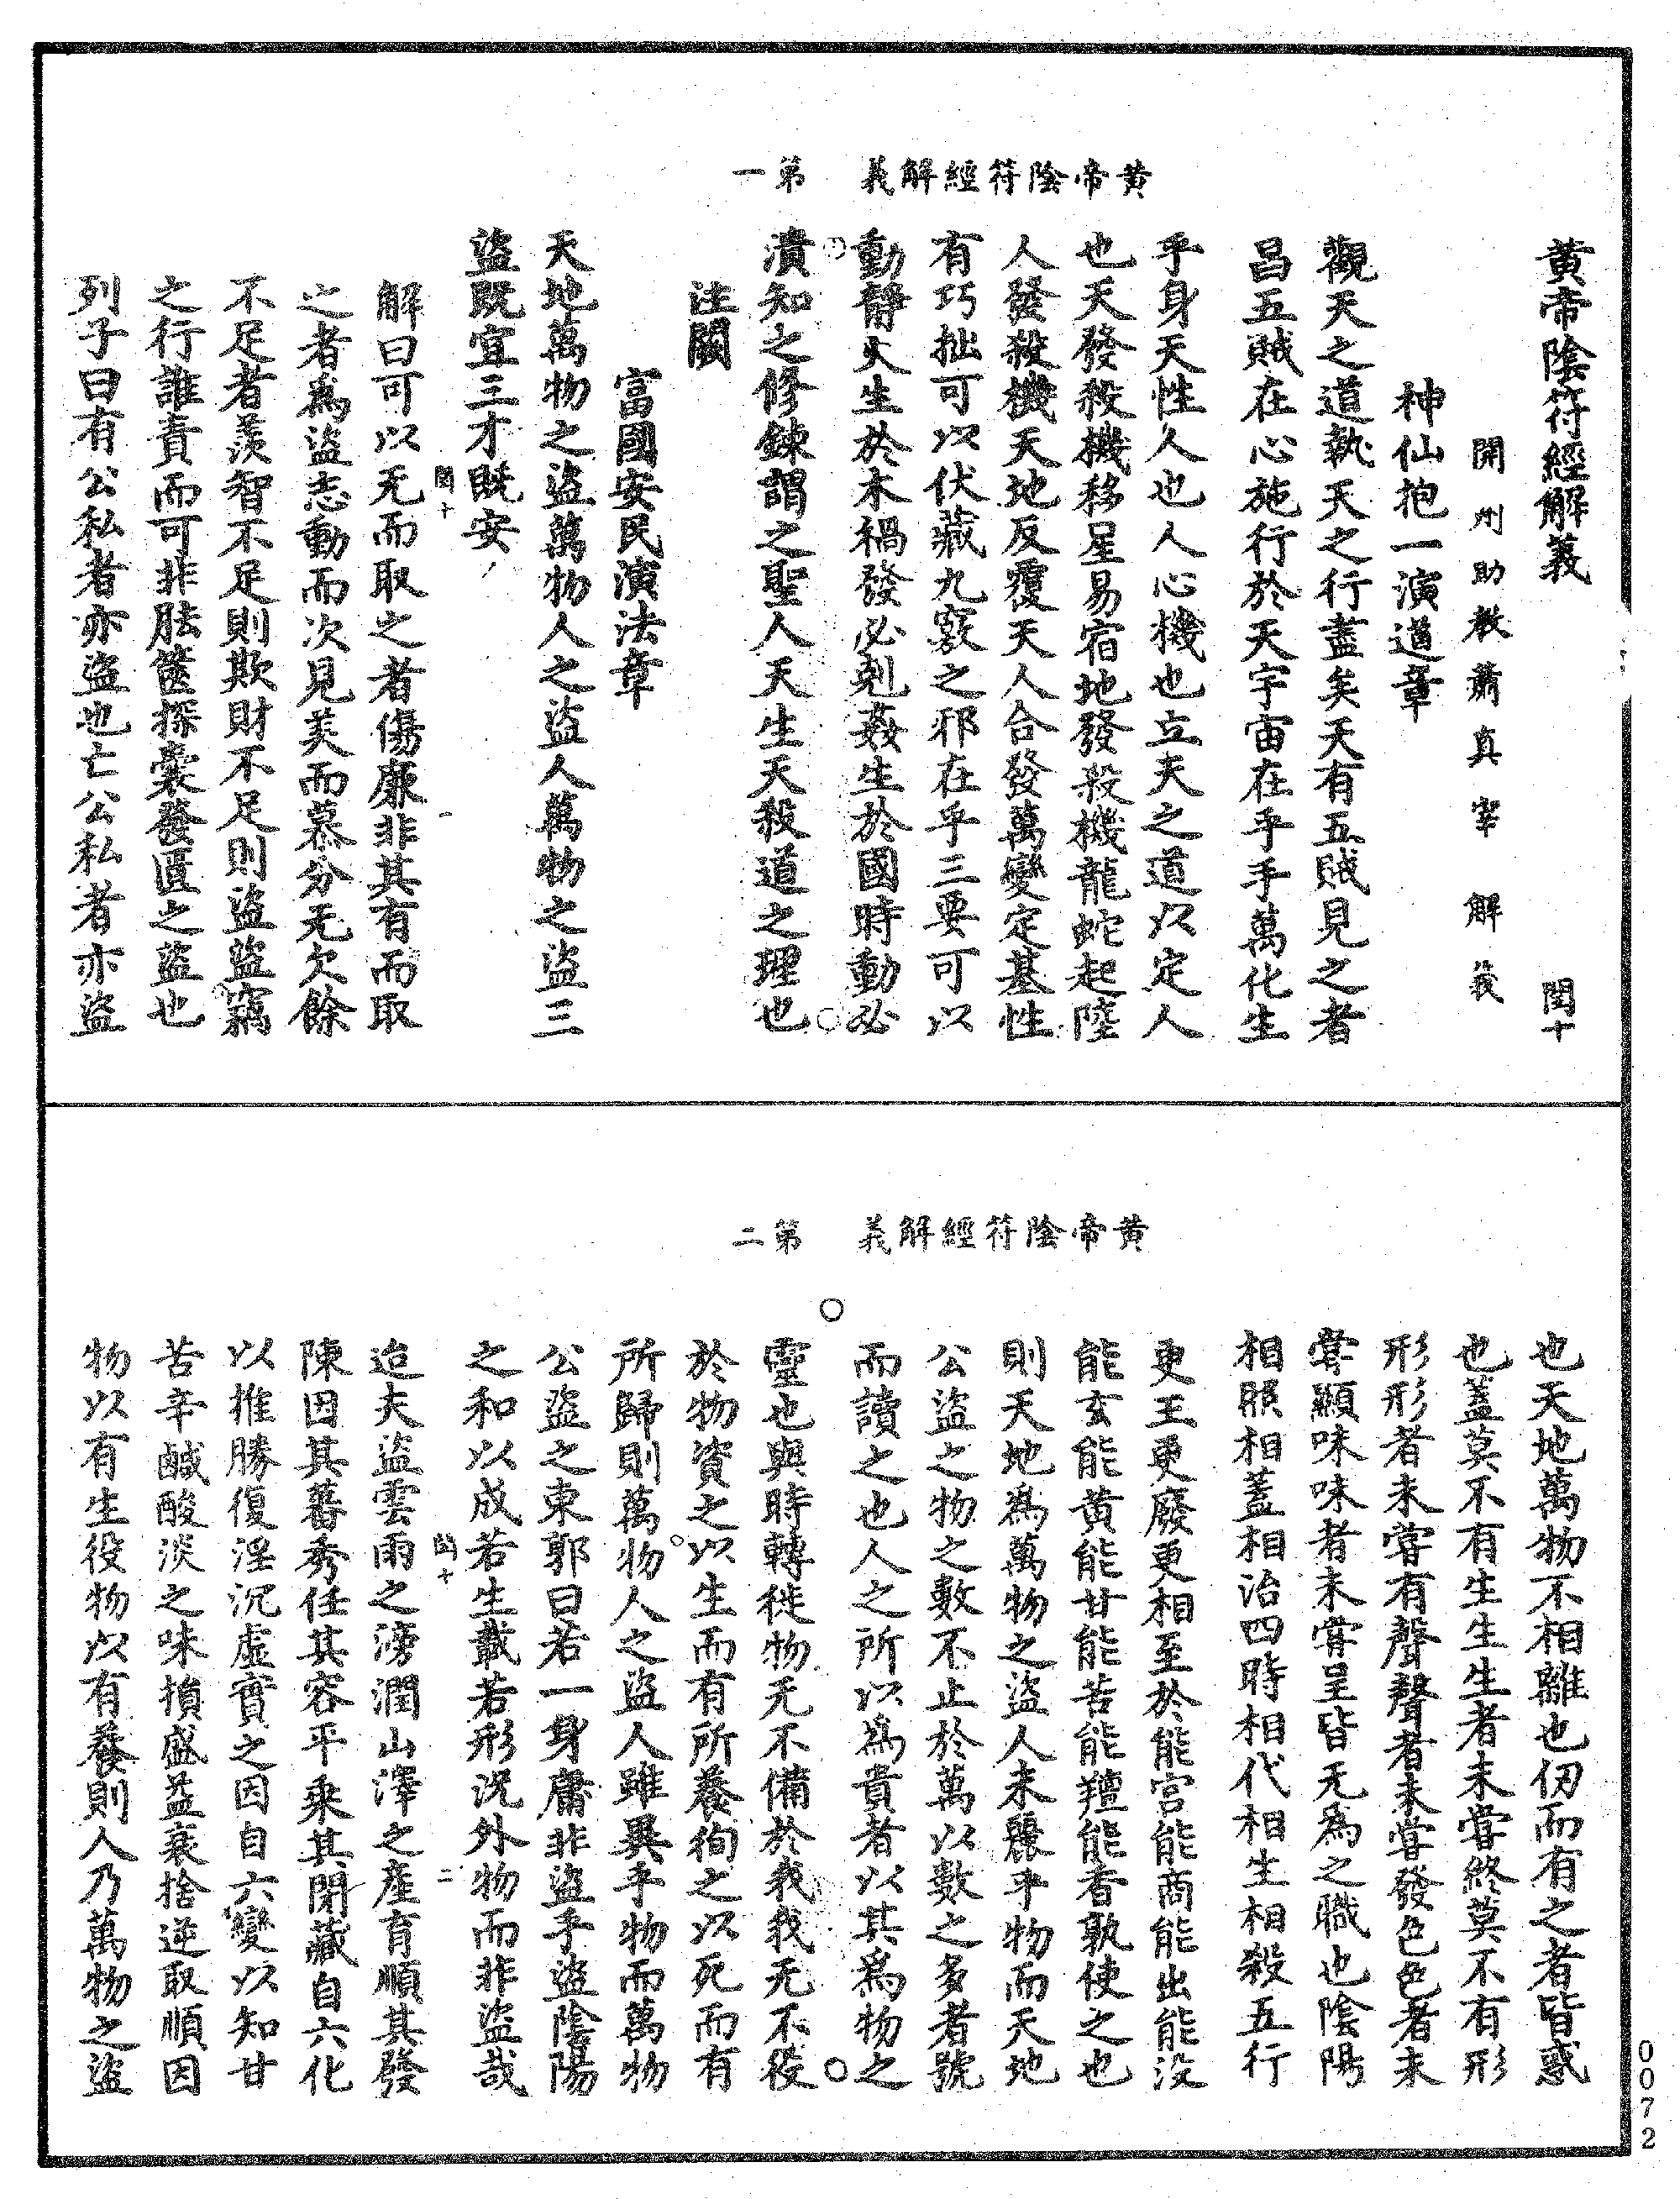 黃帝陰符經解義　第一
黃帝陰符經解義　閏十
開州助教蕭真宰　解義
神仙抱一演道章
觀天之道執天之行盡矣天有五賊見之者
昌五賊在心施行於天宇宙在乎手萬化生
乎身天性人也人心機也立天之道以定人
也天發殺機移星易宿地發殺機龍蛇起陸
人發殺機天地反覆天人合發萬變定基性
有巧拙可以伏藏九竅之邪在乎三要可以
動靜火生於木禍發必剋姦生於國時動必
潰知之修鍊謂之聖人天生天殺道之理也
注闕
富國安民演法章
天地萬物之盜萬物人之盜人萬物之盜三
盜既宜三才既安
閏十　一
解曰可以无而取之者傷廉非其有而取
之者為盜志動而次見美而慕分无欠餘
不足者羨智不足則欺財不足則盜盜竊
之行誰責而可非胠篋探囊發匱之盜也
列子曰有公私者亦盜也亡公私者亦盜
黃帝陰符經解義　第二
也天地萬物不相離也仞而有之者皆惑
也蓋莫不有生生生者未嘗終莫不有形
形形者未嘗有聲聲者未嘗發色色者未
嘗顯味味者未嘗呈皆无為之職也陰陽
相照相蓋相治四時相代相生相殺五行
更王更廢更相至於能宮能商能出能沒
能玄能黃能甘能苦能羶能香孰使之也
則天地為萬物之盜人未麗乎物而天地
公盜之物之數不止於萬以數之多者號
而讀之也人之所以為貴者以其為物之
靈也與時轉徙物无不備於我我无不役
於物資之以生而有所養徇之以死而有
所歸則萬物人之盜人雖異乎物而萬物
公盜之東郭曰若一身庸非盜乎盜陰陽
之和以成若生載若形況外物而非盜哉
閏十　二
迨夫盜雲雨之滂潤山澤之產育順其發
陳因其蕃秀任其容平乘其閉藏自六化
以推勝復淫沉虛實之因自六變以知甘
苦辛鹹酸淡之味損盛益衰捨逆取順因
物以有生役物以有養則人乃萬物之盜
0072